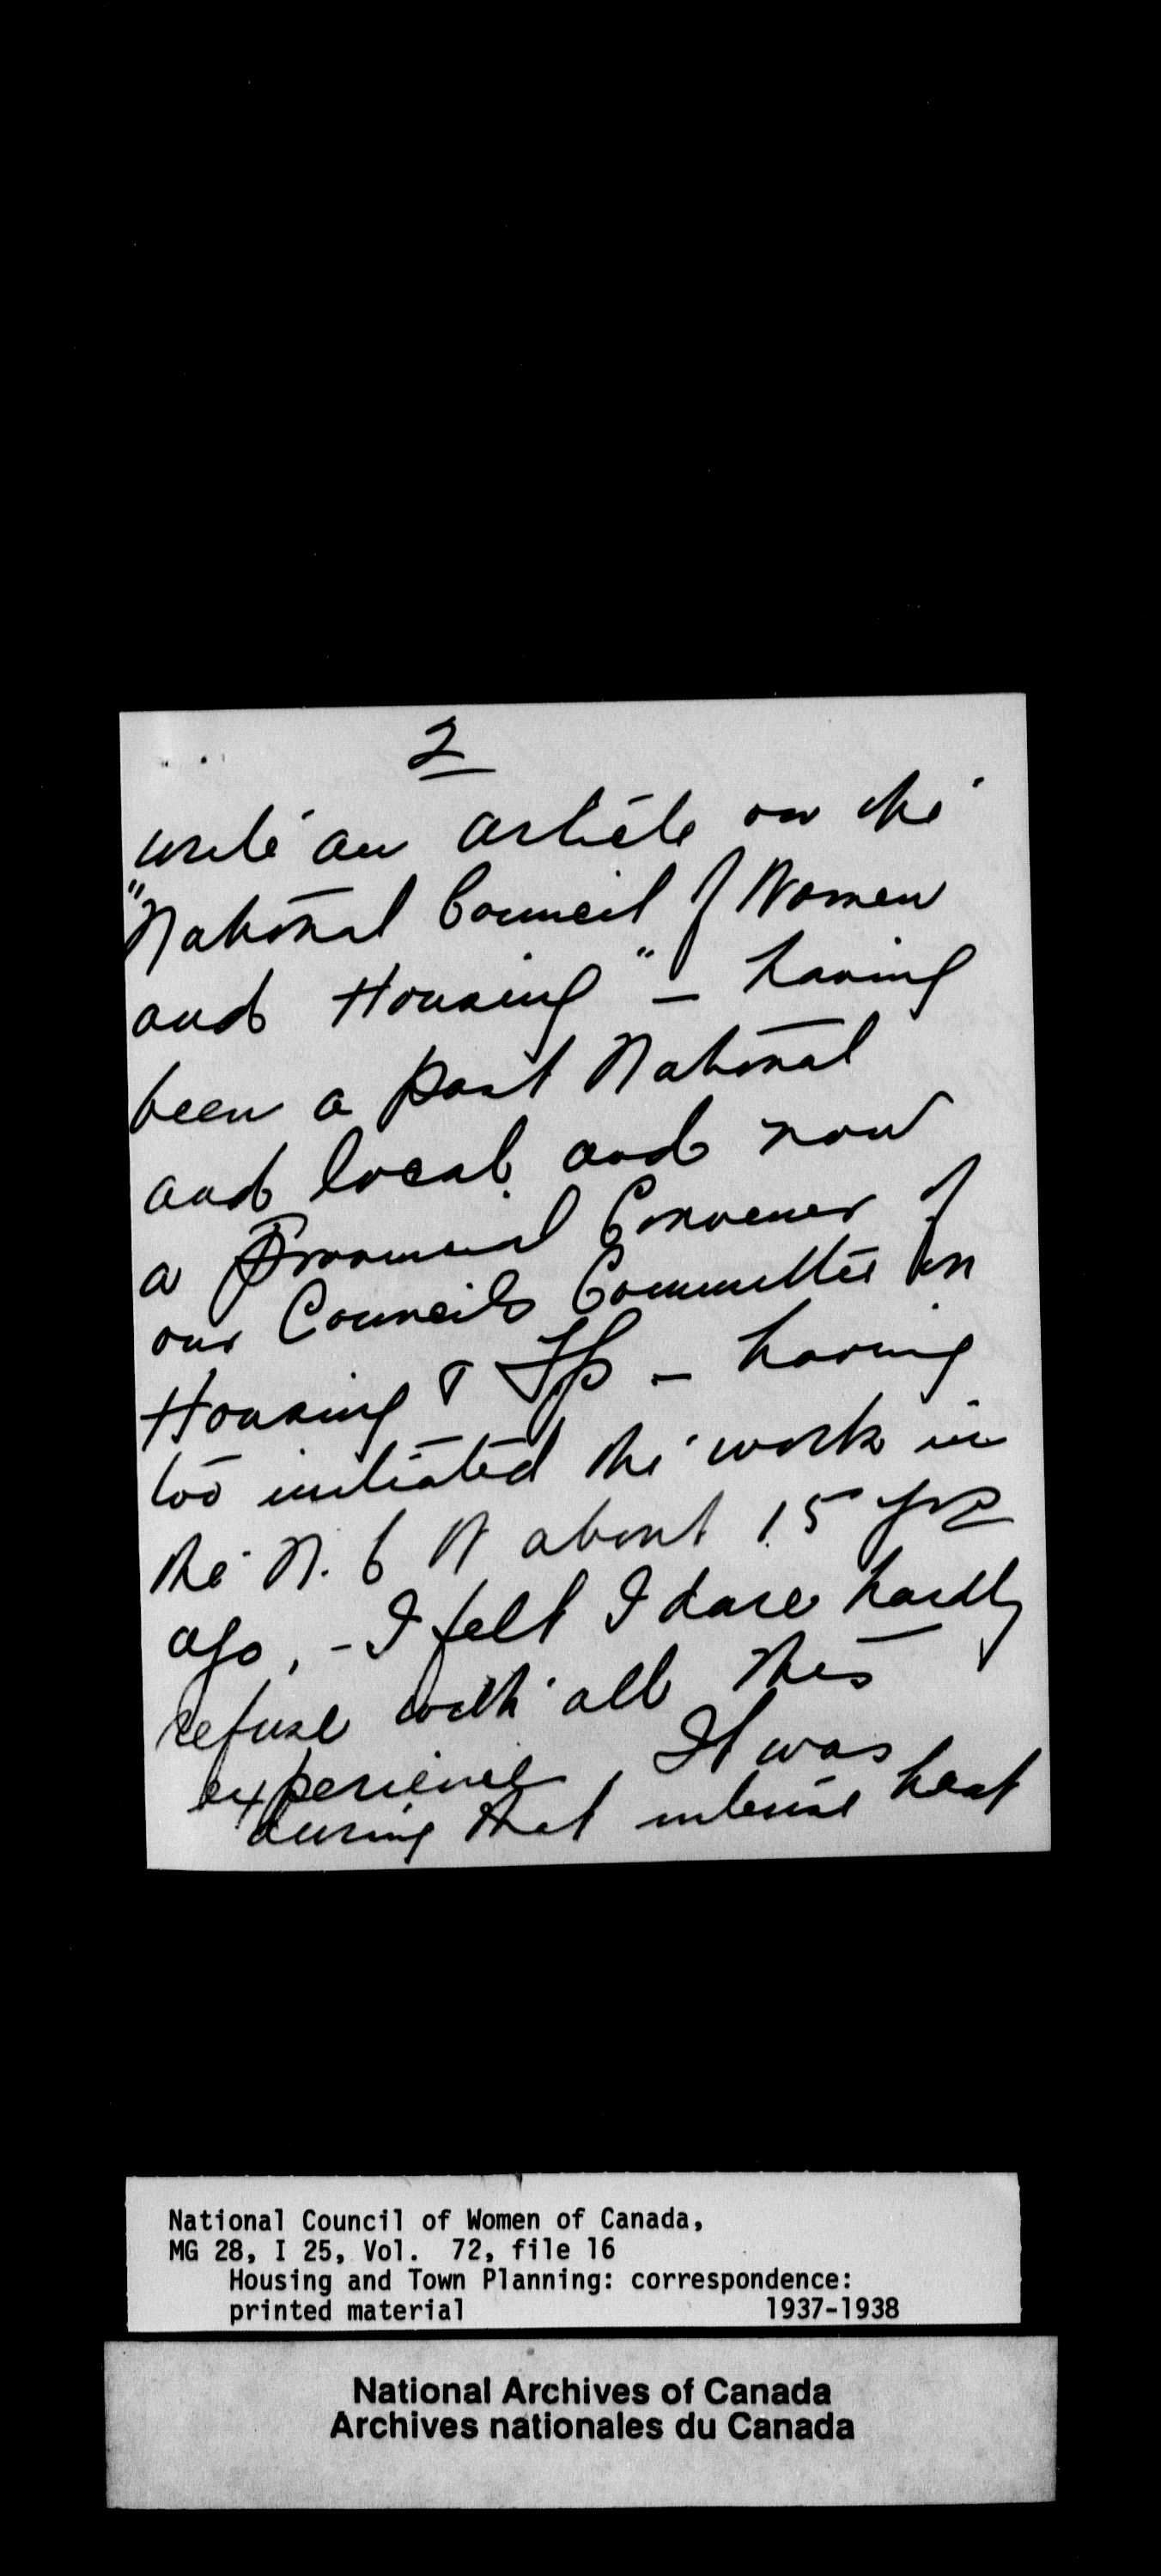 2
write an article on the
"National Council of Women
and Housing" - having
been a past National
and local and now
a Provincial Convener of
our Councils Committee on
Housing & Tp - having
too initiated the work in
the N. C W about 15 yrs
ago, - I felt I dare hardly
refuse with all this
experience. It was
during that intense heat
National Council of Women of Canada,
MG 28, I 25, Vol. 72, file 16
Housing and Town Planning: correspondence:
printed material 1937-1938
National Archives of Canada
Archives nationales du Canada